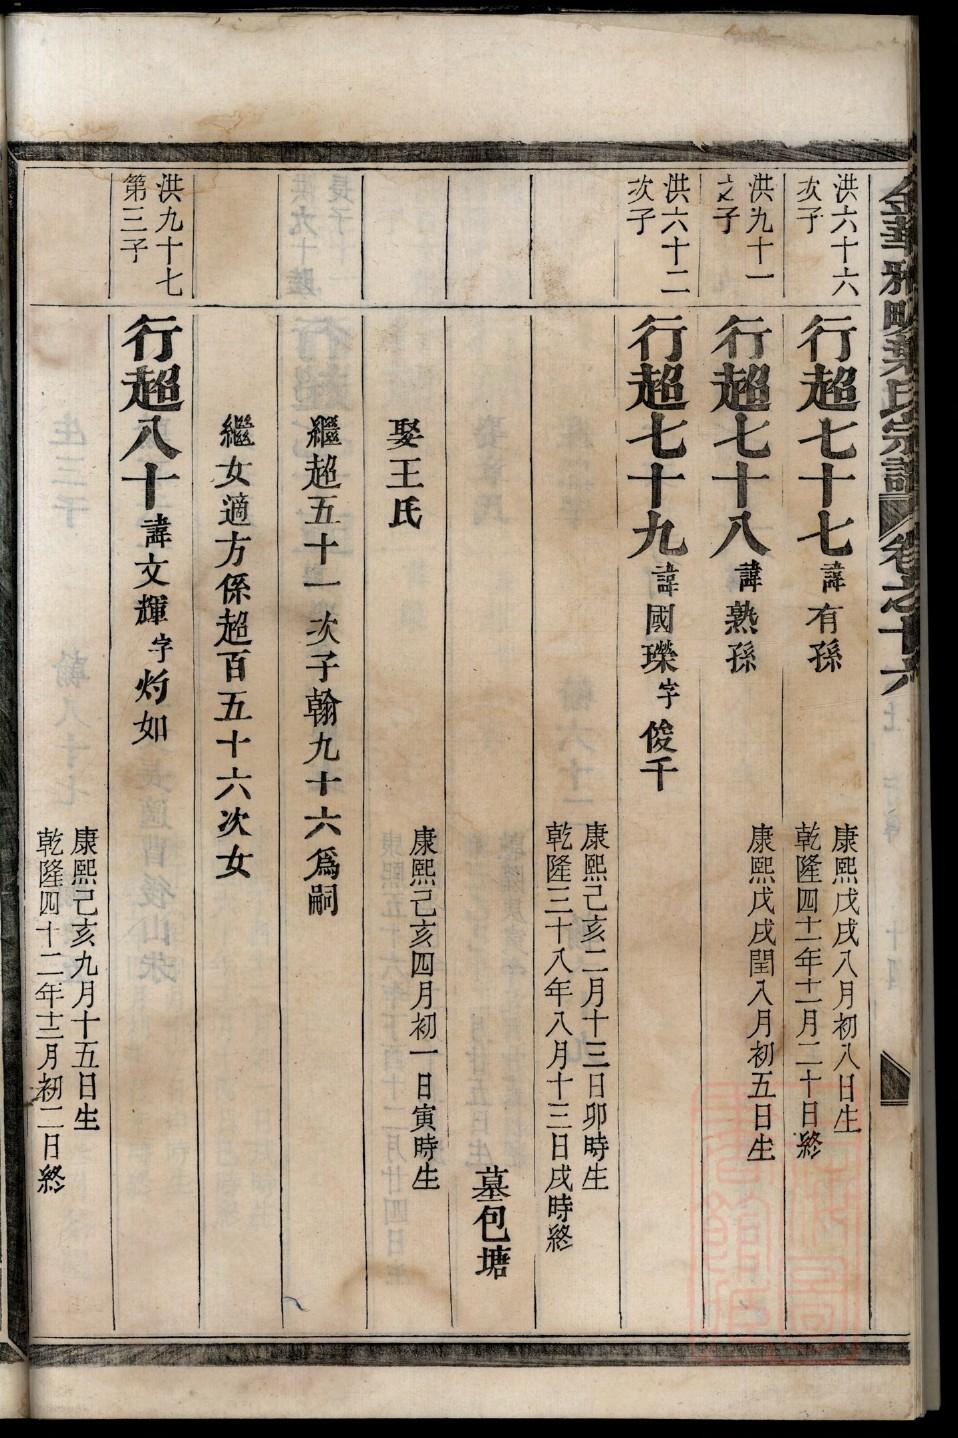 金華雅畈葉氏宗譜 卷之十六
洪六十六
次子
行超七十七 諱有孫
康熙戊戌八月初八日生
乾隆四十一年十一月二十日終
洪九十一
之子
行超七十八 諱熟孫
康熙戊戌閏八月初五日生
洪六十二
次子
行超七十九 諱國瓅 字俊千
康熙己亥二月十三日卯時生
乾隆三十八年八月十三日戌時終
墓包塘
娶王氏
康熙己亥四月初一日寅時生
繼超五十一次子翰九十六爲嗣
繼女適方係超百五十六次女
洪九十七
第三子
行超八十 諱文輝 字灼如
康熙己亥九月十五日生
乾隆四十二年十二月初二日終